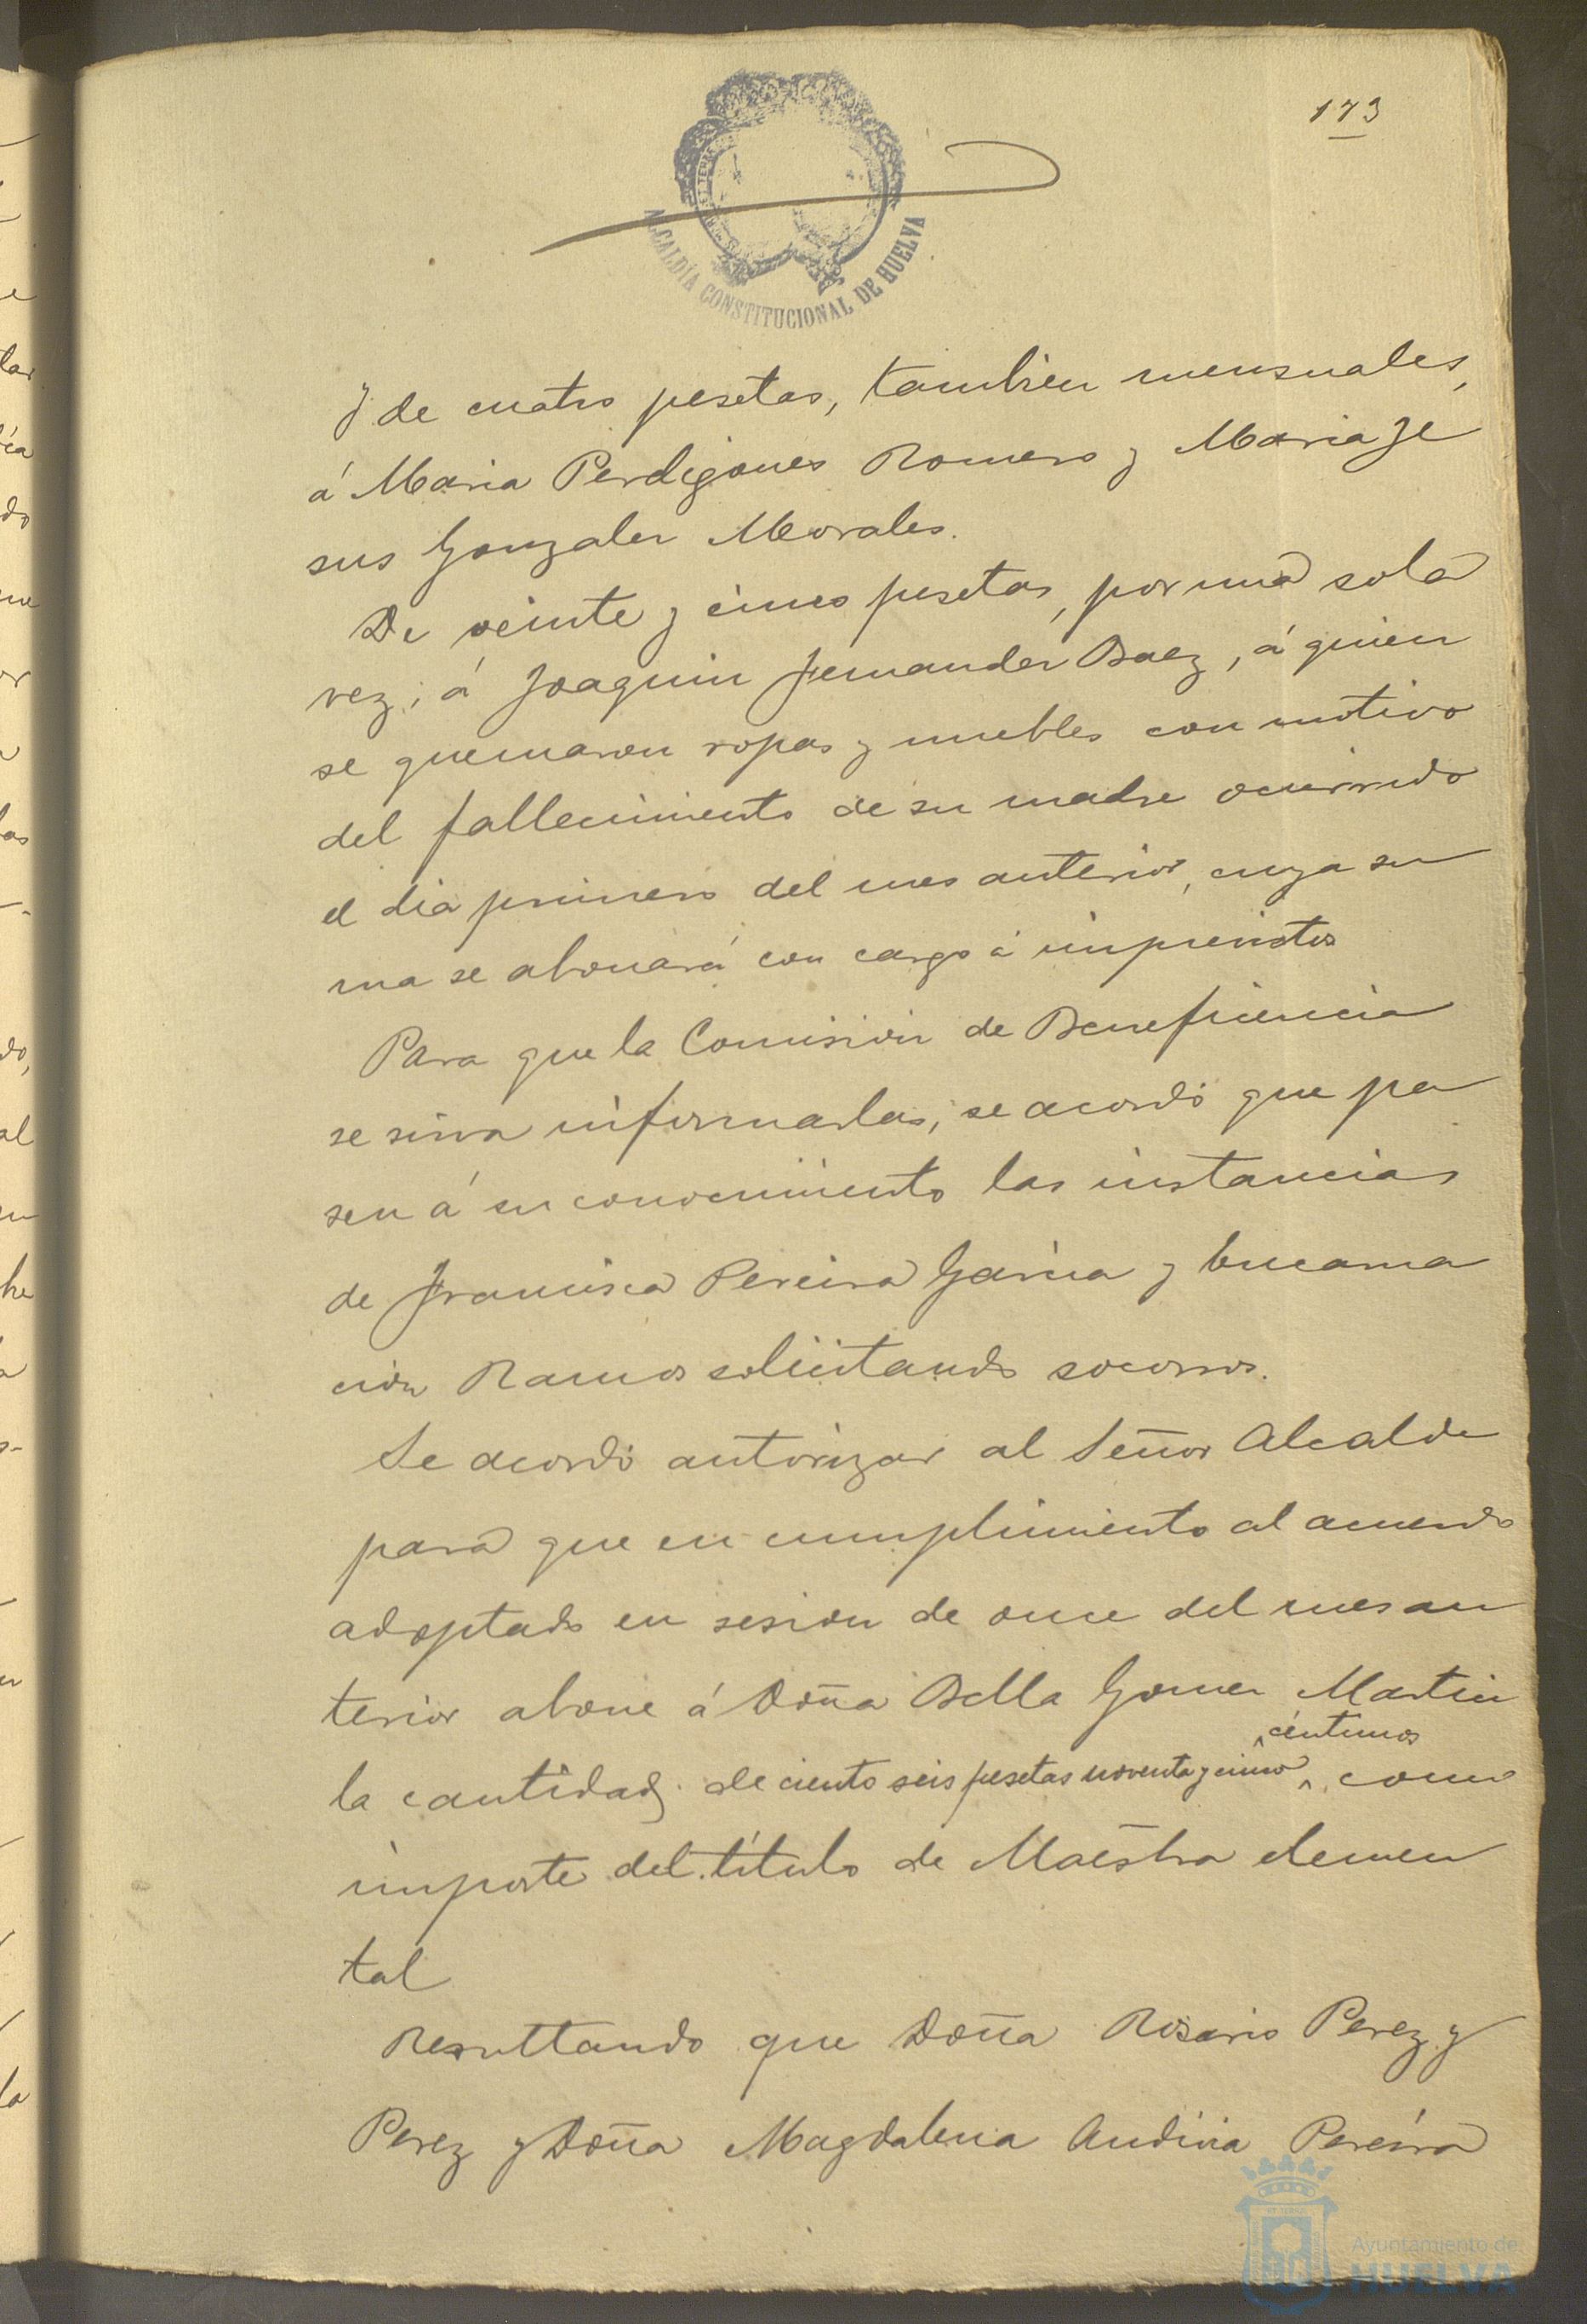 173
ALCALDÍA CONSTITUCIONAL DE HUELVA
y de cuatro pesetas, tambien mensuales,
á Maria Perdigones Romero y Maria Je
sus Gonzalez Morales.
De veinte y cinco pesetas, por una sola
vez, á Joaquin Fernandez Baez, á quien
se quemaron ropas y muebles con motivo
del fallecimiento de su madre ocurrido
el dia primero del mes anterior, cuya su
ma se abonará con cargo á imprevistos
Para que la Comision de Beneficencia
se sirva informarlas, se acordó que pa
sen á su conocimiento las instancias
de Francisca Pereira Garcia y Encarna
cion Ramos solicitando socorros.
Se acordó autorizar al Señor Alcalde
para que en cumplimiento al acuerdo
adoptado en sesion de once del mes an
terior abone á Doña Bella Gomez Martin
céntimos
la cantidad de ciento seis pesetas noventa y cinco como
importe del título de Maestra elemen
tal
Resultando que Doña Rosario Perez y
Perez y Doña Magdalena Andivia Pereira
Ayuntamiento de
HUELVA